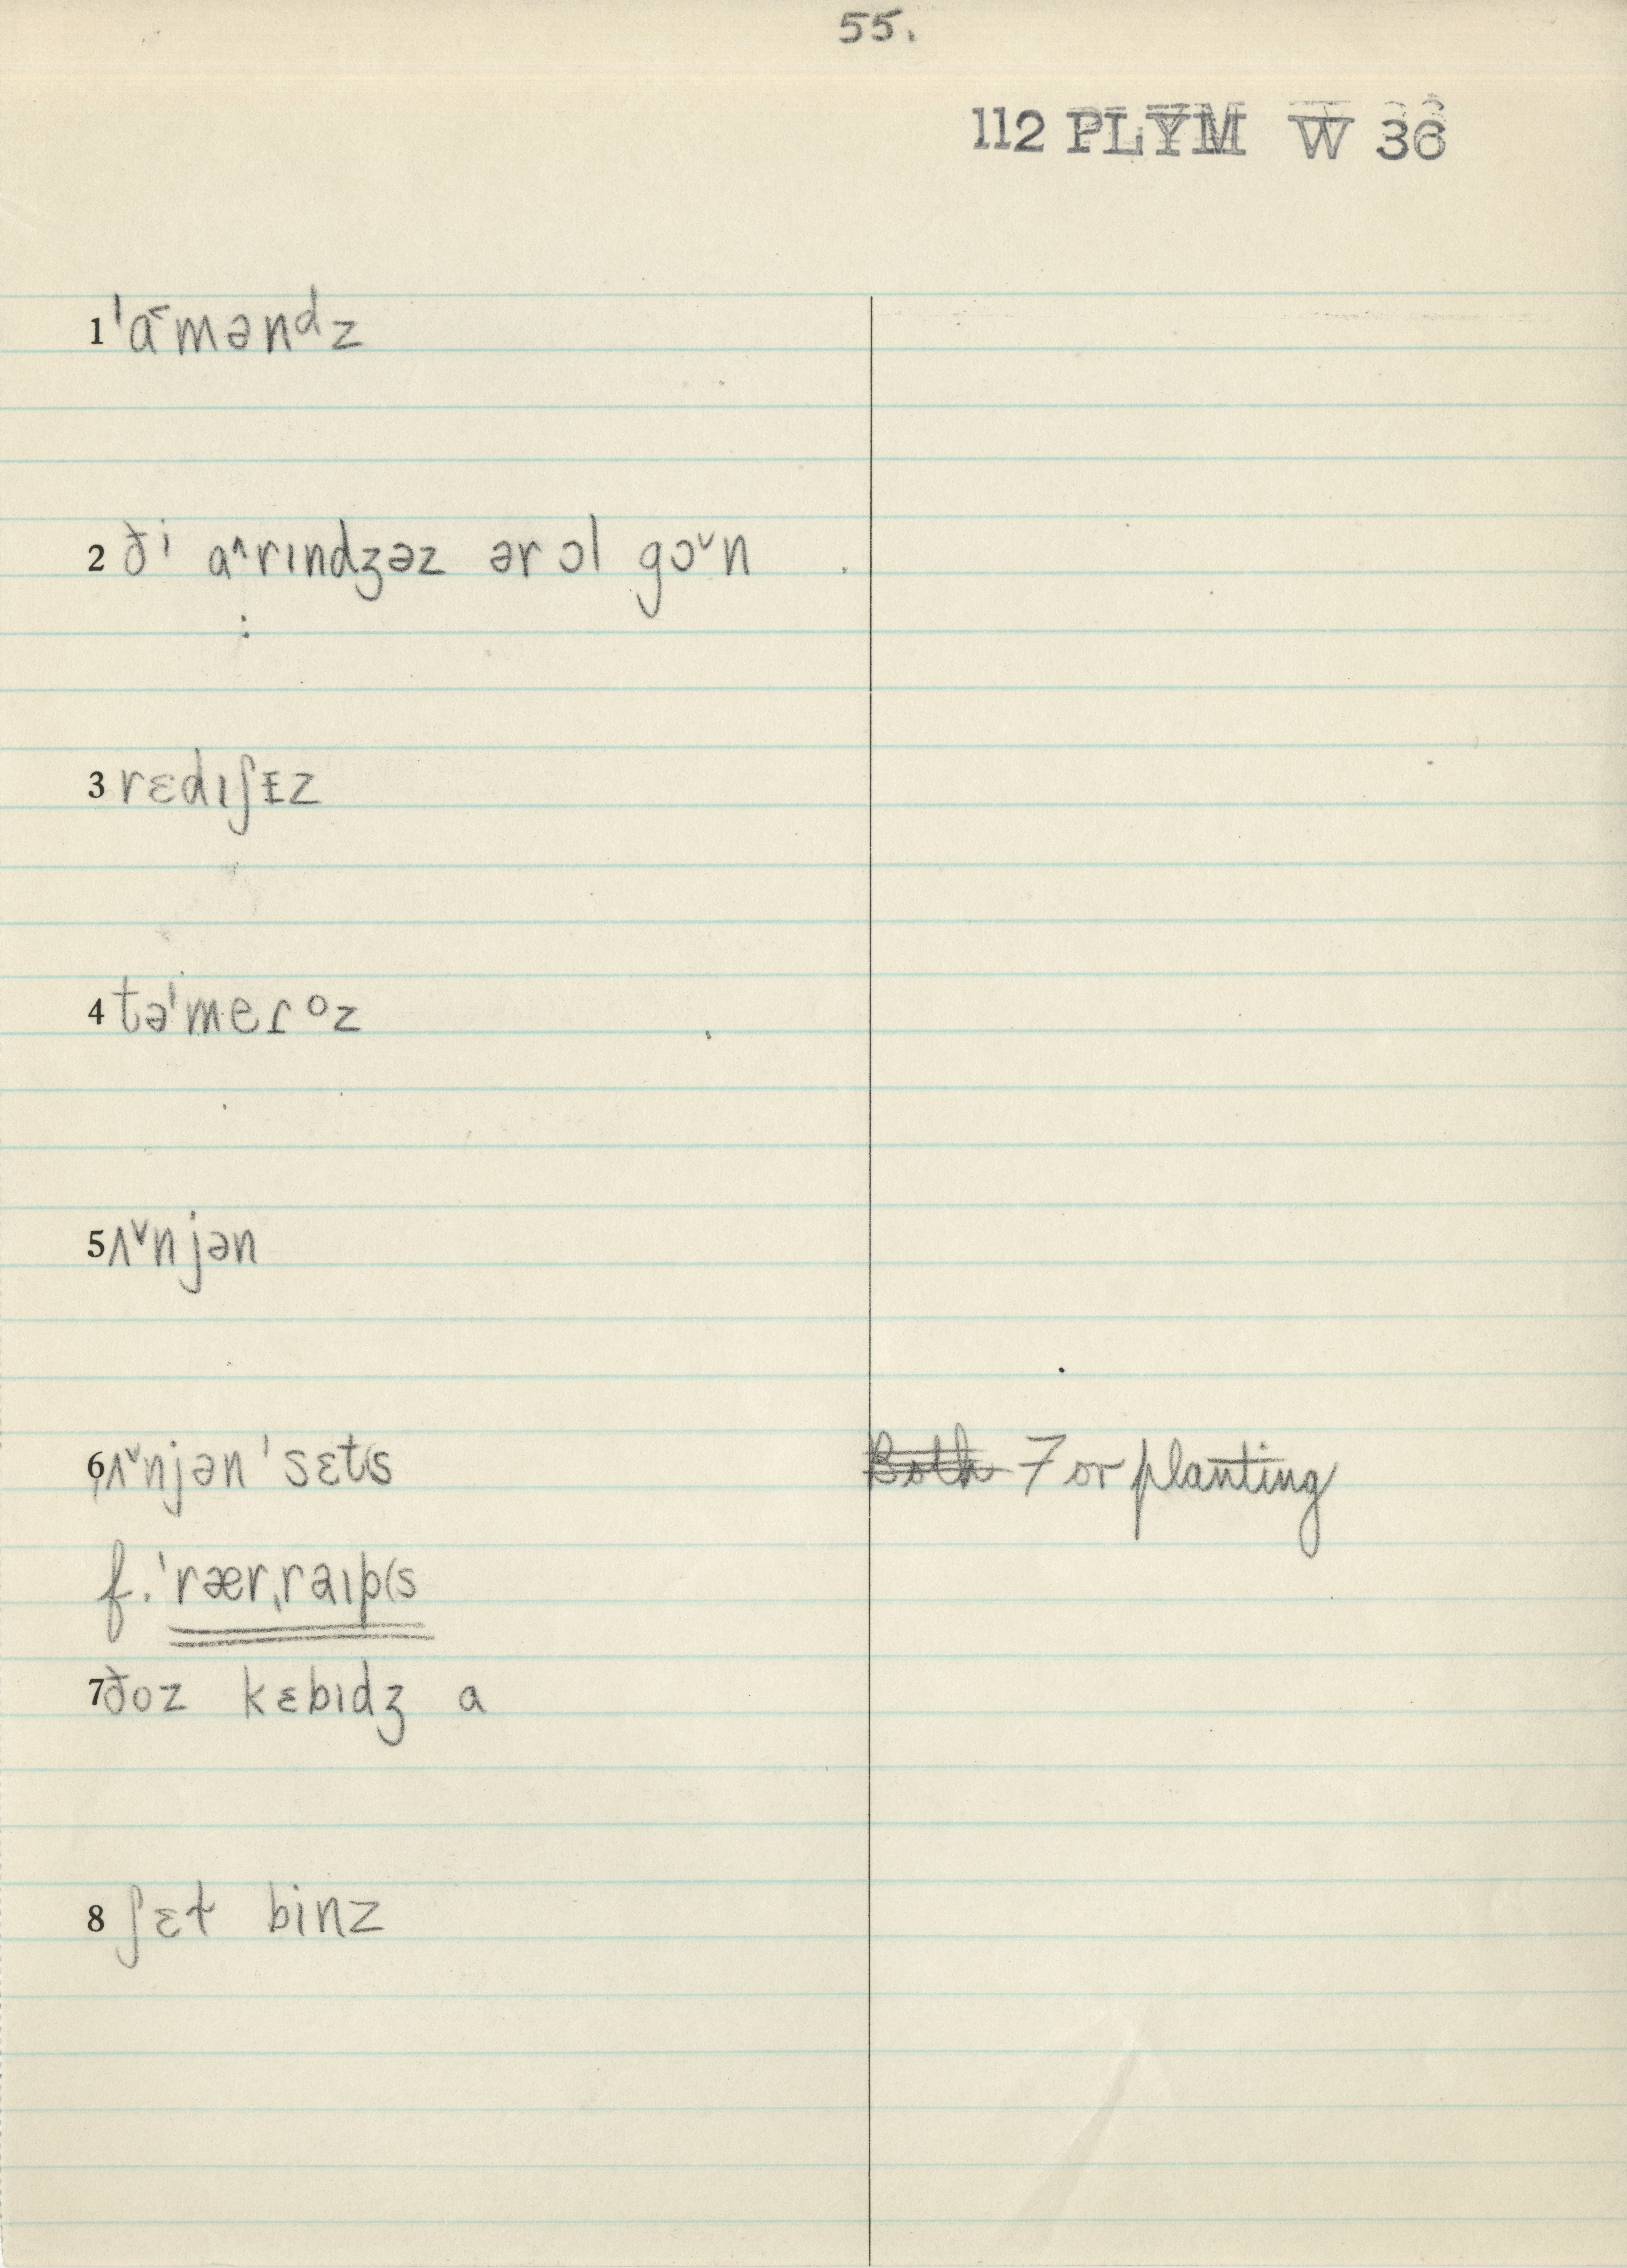 55.
112 PLYM W 36
1 ˈa˂məndᶻ
2 ðⁱ a˄rɪndʒəz ər ɔl go˅n
3 rɛdɪʃɪz
4 təˈmeɾoz
5 ʌ˅njən
6 ʌ˅njən ˈsɛts Both For planting
f. ˈrærˌraɪp(s
7 ðoz kɛbɪdʒ a
8 ʃɛt binz